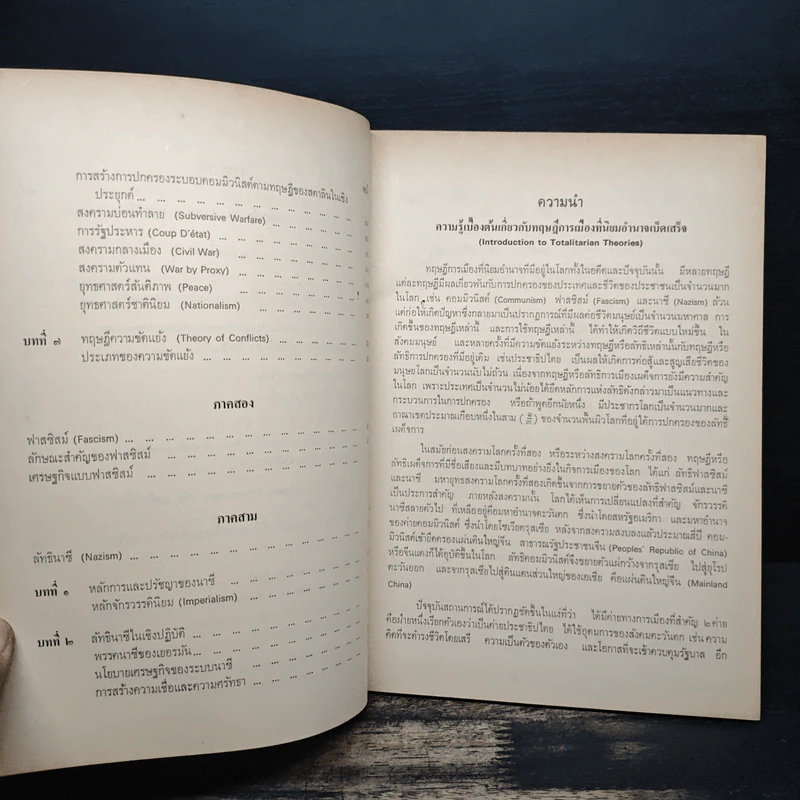 การสร้างการปกครองระบอบคอมมิวนิสต์ตามทฤษฎีของสตาลินในเชิง
ประยุกต์ ... ... ... ... ... ... ... ... ... ...
สงครามบ่อนทำลาย (Subversive Warfare) ... ... ... ... ...
การรัฐประหาร (Coup D'état) ... ... ... ... ... ... ...
สงครามกลางเมือง (Civil War) ... ... ... ... ... ... ...
สงครามตัวแทน (War by Proxy) ... ... ... ... ... ...
ยุทธศาสตร์สันติภาพ (Peace) ... ... ... ... ... ...
ยุทธศาสตร์ชาตินิยม (Nationalism) ... ... ... ... ... ...
บทที่ ๗ ทฤษฎีความขัดแย้ง (Theory of Conflicts) ... ... ... ... ...
ประเภทของความขัดแย้ง ... ... ... ... ... ... ... ...
ภาคสอง
ฟาสซิสม์ (Fascism) ... ... ... ... ... ... ... ... ...
ลักษณะสำคัญของฟาสซิสม์ ... ... ... ... ... ... ... ...
เศรษฐกิจแบบฟาสซิสม์ ... ... ... ... ... ... ... ... ...
ภาคสาม
ลัทธินาซี (Nazism) ... ... ... ... ... ... ... ... ...
บทที่ ๑ หลักการและปรัชญาของนาซี ... ... ... ... ... ...
หลักจักรวรรดินิยม (Imperialism) ... ... ... ... ... ...
บทที่ ๒ ลัทธินาซีในเชิงปฏิบัติ ... ... ... ... ... ... ...
พรรคนาซีของเยอรมัน... ... ... ... ... ... ...
นโยบายเศรษฐกิจของระบบนาซี ... ... ... ... ... ...
การสร้างความเชื่อและความศรัทธา ... ... ... ... ... ...
ความนำ
ความรู้เบื้องต้นเกี่ยวกับทฤษฎีการเมืองที่นิยมอำนาจเบ็ดเสร็จ
(Introduction to Totalitarian Theories)
ทฤษฎีการเมืองที่นิยมอำนาจที่มีอยู่ในโลกทั้งในอดีตและปัจจุบันนั้น มีหลายทฤษฎี
แต่ละทฤษฎีมีผลเกี่ยวพันกับการปกครองของประเทศและชีวิตของประชาชนเป็นจำนวนมาก
ในโลก เช่น คอมมิวนิสต์ (Communism) ฟาสซิสม์ (Fascism) และนาซี (Nazism) ล้วน
แต่ก่อให้เกิดปัญหาซึ่งกลายมาเป็นปรากฏการณ์ที่มีผลต่อชีวิตมนุษย์เป็นจำนวนมหาศาล การ
เกิดขึ้นของทฤษฎีเหล่านี้ และการใช้ทฤษฎีเหล่านี้ ได้ทำให้เกิดวิถีชีวิตแบบใหม่ขึ้น ใน
สังคมมนุษย์ และหลายครั้งที่มีความขัดแย้งระหว่างทฤษฎีหรือลัทธิเหล่านั้นกับทฤษฎีหรือ
ลัทธิการปกครองที่มีอยู่เดิม เช่นประชาธิปไตย เป็นผลให้เกิดการต่อสู้และสูญเสียชีวิตของ
มนุษย์โลกเป็นจำนวนนับไม่ถ้วน เนื่องจากทฤษฎีหรือลัทธิการเมืองเผด็จการยังมีความสำคัญ
ในโลก เพราะประเทศเป็นจำนวนไม่น้อยได้ยึดหลักการแห่งลัทธิดังกล่าวมาเป็นแนวทางและ
กระบวนการในการปกครอง หรือถ้าพูดอีกนัยหนึ่ง มีประชากรโลกเป็นจำนวนมากและ
อาณาเขตประมาณเกือบหนึ่งในสาม (๑/๓) ของจำนวนพื้นผิวโลกที่อยู่ใต้การปกครองของลัทธิ
เผด็จการ
ในสมัยก่อนสงครามโลกครั้งที่สอง หรือระหว่างสงครามโลกครั้งที่สอง ทฤษฎีหรือ
ลัทธิเผด็จการที่มีชื่อเสียงและมีบทบาทอย่างยิ่งในกิจการเมืองของโลก ได้แก่ ลัทธิฟาสซิสม์
และนาซี มหายุทธสงครามโลกครั้งที่สองเกิดขึ้นจากการขยายตัวของลัทธิฟาสซิสม์และนาซี
เป็นประการสำคัญ ภายหลังสงครามนั้น โลกได้เห็นการเปลี่ยนแปลงที่สำคัญ จักรวรรดิ
นาซีสลายตัวไป ที่เหลืออยู่คือมหาอำนาจตะวันตก ซึ่งนำโดยสหรัฐอเมริกา และมหาอำนาจ
ของค่ายคอมมิวนิสต์ ซึ่งนำโดยโซเวียตรุสเซีย หลังจากสงครามสงบลงแล้วประมาณสี่ปี คอม-
มิวนิสต์เข้ายึดครองแผ่นดินใหญ่จีน สาธารณรัฐประชาชนจีน (Peoples' Republic of China)
หรือจีนแดงก็ได้อุบัติขึ้นในโลก ลัทธิคอมมิวนิสต์จึงขยายตัวแผ่กว้างจากรุสเซีย ไปสู่ยุโรป
ตะวันออก และจากรุสเซียไปสู่ดินแดนส่วนใหญ่ของเอเชีย คือแผ่นดินใหญ่จีน (Mainland
China)
ปัจจุบันสถานการณ์ได้ปรากฏชัดขึ้นในแง่ที่ว่า ได้มีค่ายทางการเมืองที่สำคัญ ๒ ค่าย
คือฝ่ายหนึ่งเรียกตัวเองว่าเป็นค่ายประชาธิปไตย ได้ใช้อุดมการของสังคมตะวันตก เช่น ความ
คิดที่จะดำรงชีวิตโดยเสรี ความเป็นตัวของตัวเอง และโอกาสที่จะเข้าควบคุมรัฐบาล อีก